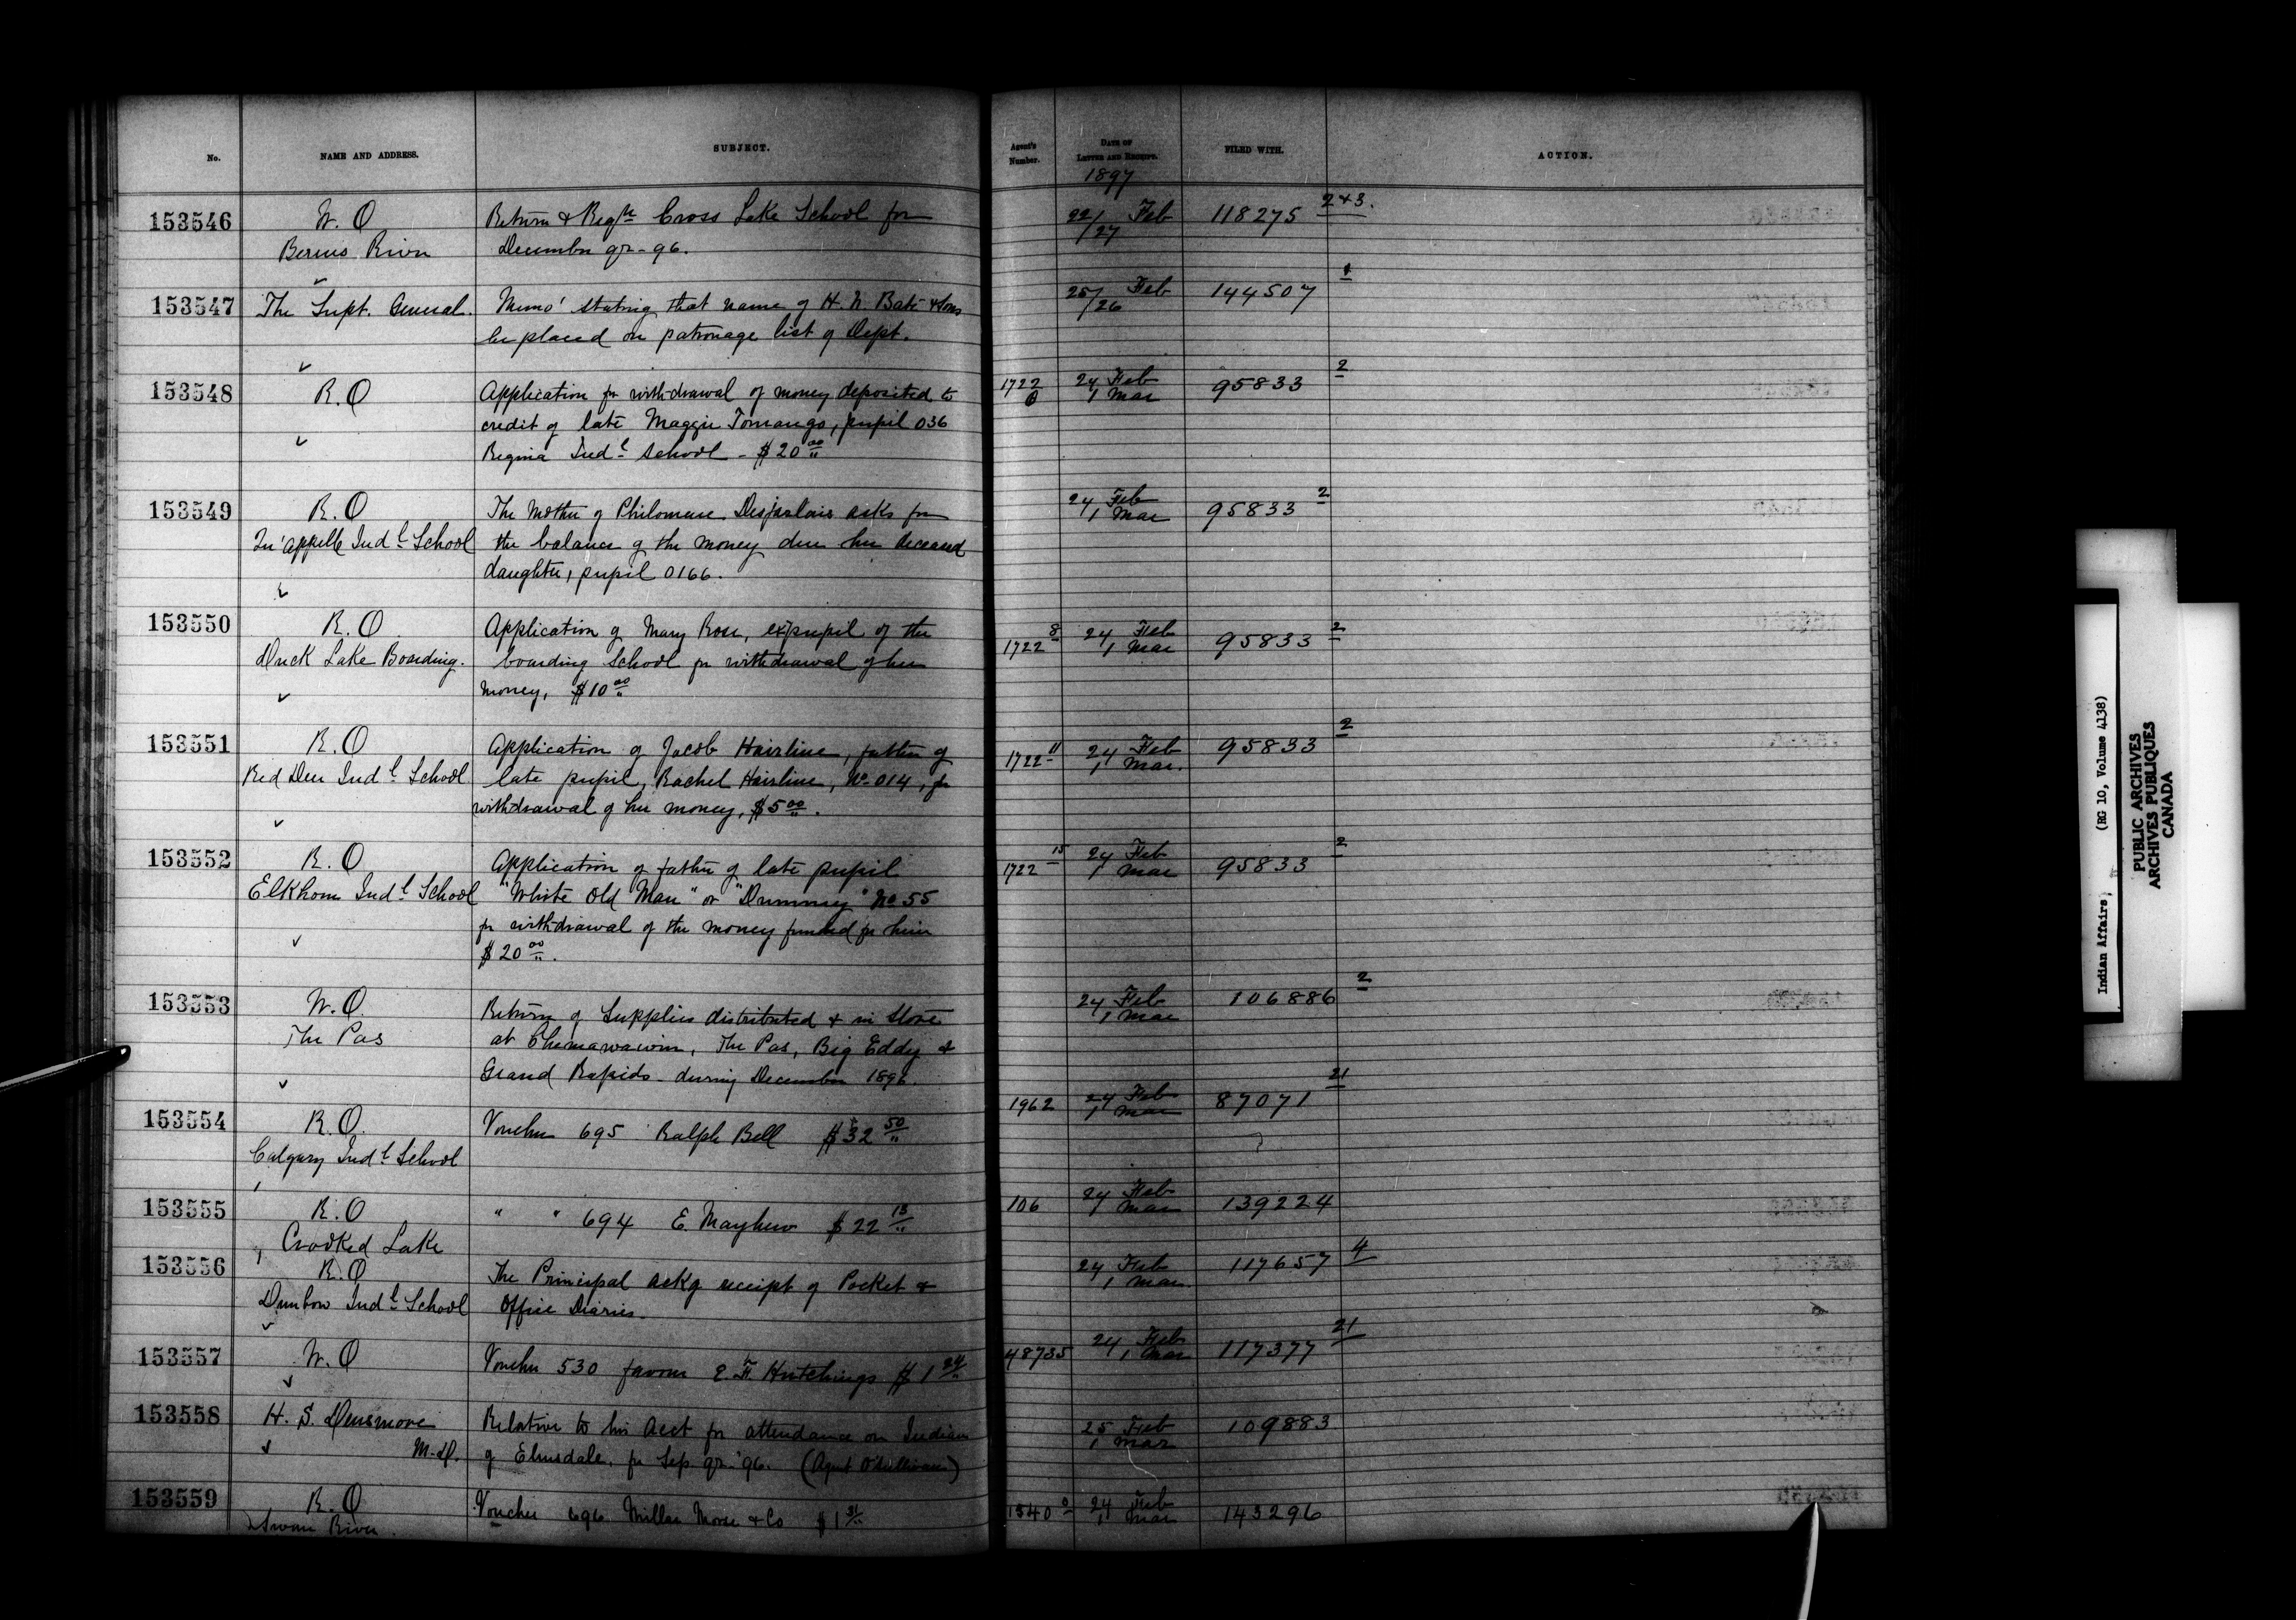 No. NAME AND ADDRESS. SUBJECT. Agent's Number. DATE OF LETTER AND RECEIPT. FILED WITH. ACTION.
1897
153546 W. O Return & Regtr Cross Lake School for 22/27 Feb 118275 2+3.
Berens River December qr - 96.
153547 The Supt. General. Memo' stating that name of H. N. Bate & Sons 25/26 Feb 144507 1
be placed on patronage list of Dept.
153548 R. O Application for withdrawal of money deposited to 1722 6 24 Feb 1 Mar 95833 2
credit of late Maggie Tomango, pupil 036
Regina Indl School - $20 00
153549 R. O The Mother of Philomene Desjarlais asks for 24 Feb 1 Mar 95833 2
Qu'appelle Indl School the balance of the money due her deceased
daughter, pupil 0166.
153550 R. O Application of Mary Rose, ex pupil of the 1722 8 24 Feb 1 Mar 95833 2
Duck Lake Boarding. boarding School for withdrawal of her
money, $10 00
153551 R. O Application of Jacob Hairline, father of 1722 11 24 Feb 1 Mar. 95833 2
Red Deer Indl School late pupil, Rachel Hairline, No 014, for
withdrawal of her money, $5 00.
153552 R. O Application of father of late pupil 1722 15 24 Feb 1 Mar 95833 2
Elkhorn Indl School "White Old Man" or "Dummy" No 55
for withdrawal of the money funded for him
$20 00.
153553 W. O. Return of Supplies distributed & in Store 24 Feb 1 Mar 106886 2
The Pas at Chemawawin, The Pas, Big Eddy &
Grand Rapids - during December 1896.
153554 R. O. Voucher 695 Ralph Bell $32 50 1962 24 Feb 1 Mar 87071 21
Calgary Indl School
153555 R. O " " 694 E. Mayhew $22 13 106 24 Feb 1 Mar 139224
Crooked Lake
153556 R. O The Principal ackg receipt of Pocket & 24 Feb 1 Mar 117657 4
Dunbow Indl School Office Diaries.
153557 W. O Voucher 530 favour E. F. Hutchings $1 48735 24 Feb 1 Mar 117377 21
153558 H. S. Densmore Relative to his acct for attendance on Indian 25 Feb 1 Mar 109883
M.D. of Elmsdale, for Sep qr - '96. (Agent O'Sullivan)
153559 R. O Voucher 696 Millar Morse & Co $1 31 1340 24 Feb 1 Mar 143296
Swan River.
Indian Affairs, (RG 10, Volume 4138)
PUBLIC ARCHIVES
ARCHIVES PUBLIQUES
CANADA